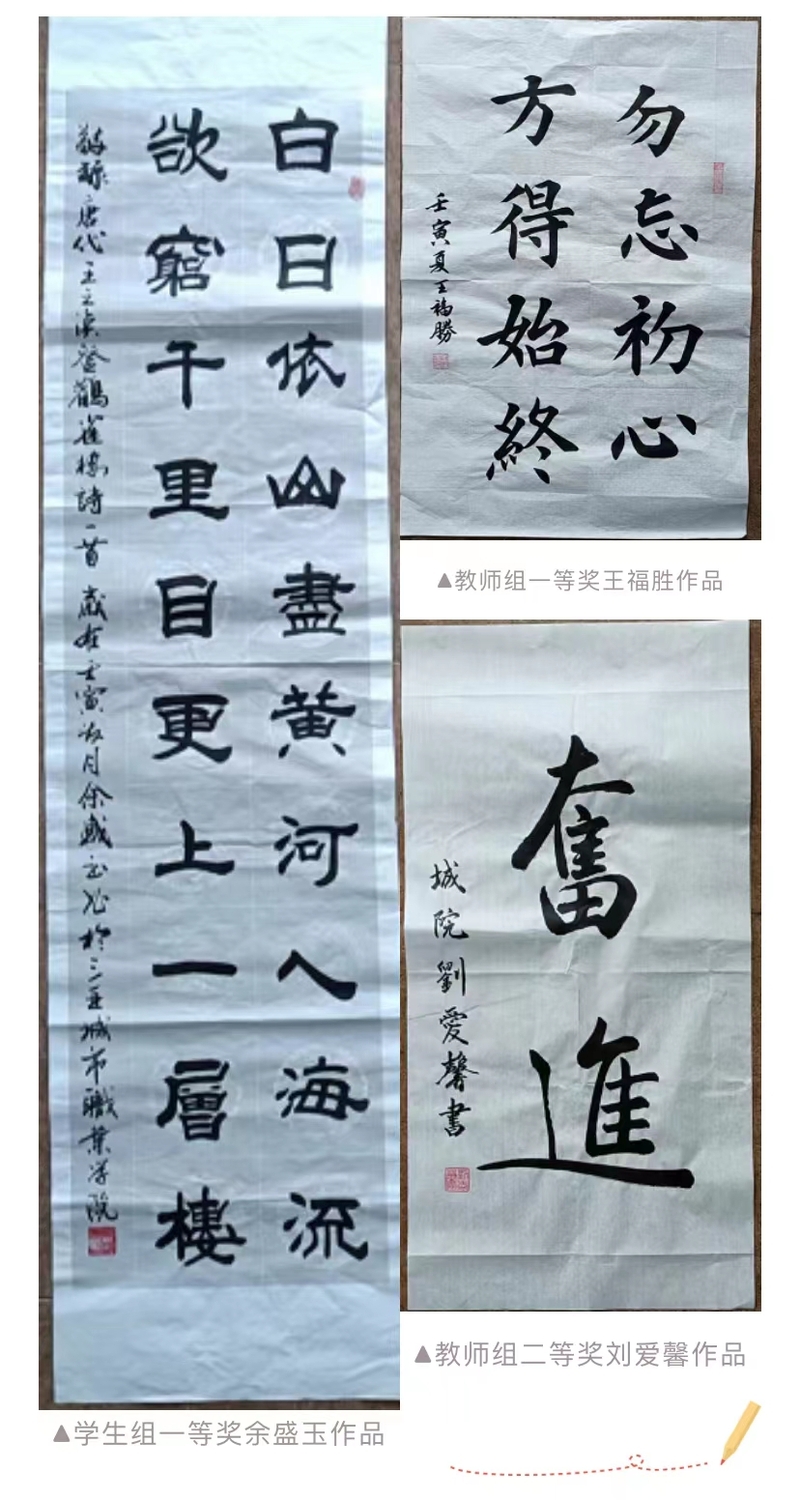 白日依山盡黄河入海流
欲窮千里目更上一層樓
唐代王之渙登鸛雀樓詩一首 歲在壬寅月余盛玉於三亜城市職業学院
▲学生组一等奖余盛玉作品
勿忘初心
方得始終
壬寅夏王福勝
▲教师组一等奖王福胜作品
奮進
城院劉愛馨书
▲教师组二等奖刘爱馨作品